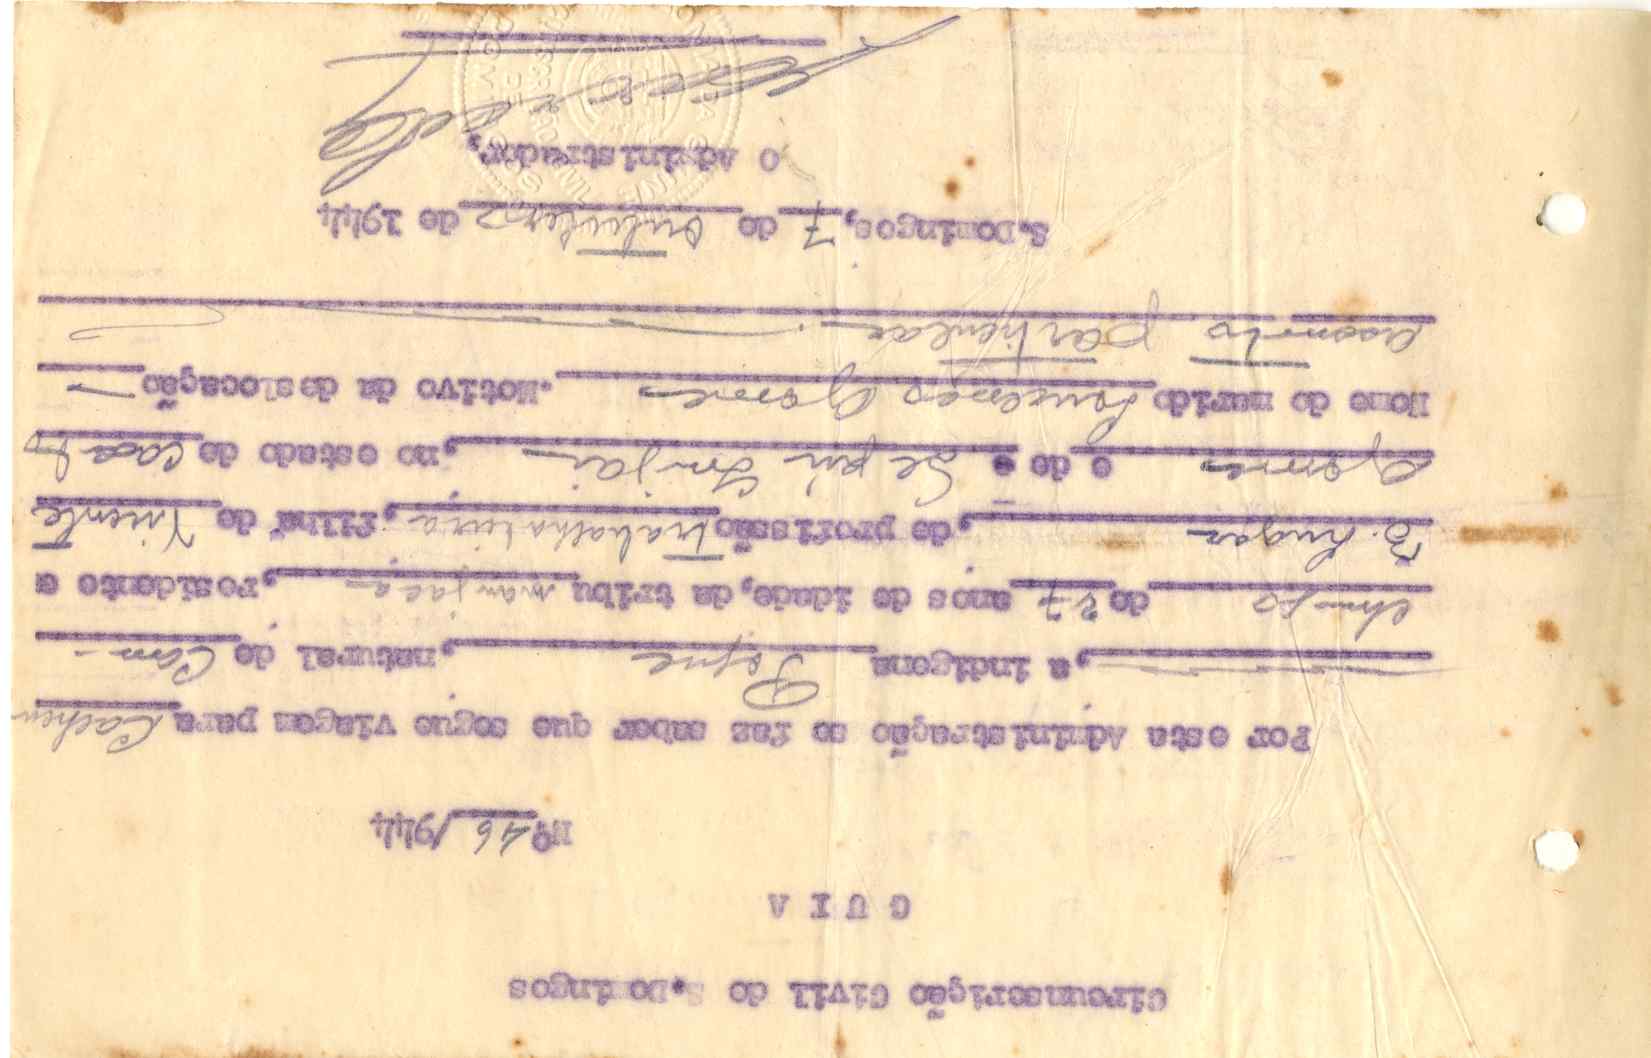 Circunscrição Civil de S.Domingos
G U I A
Nº 46/944
Por esta Administração se faz saber que segue viagem para Cacheu
, a indigena, natural de
de 27 anos de idade, da tribu manjaca, residente e
, de profissão trabalhadeira, filha de Vicente
e de, no estado de
Nome do marido Gomes. Motivo da deslocação
assunto particular.
S.Domingos, 7 de Outubro de 1944
O Administrador,